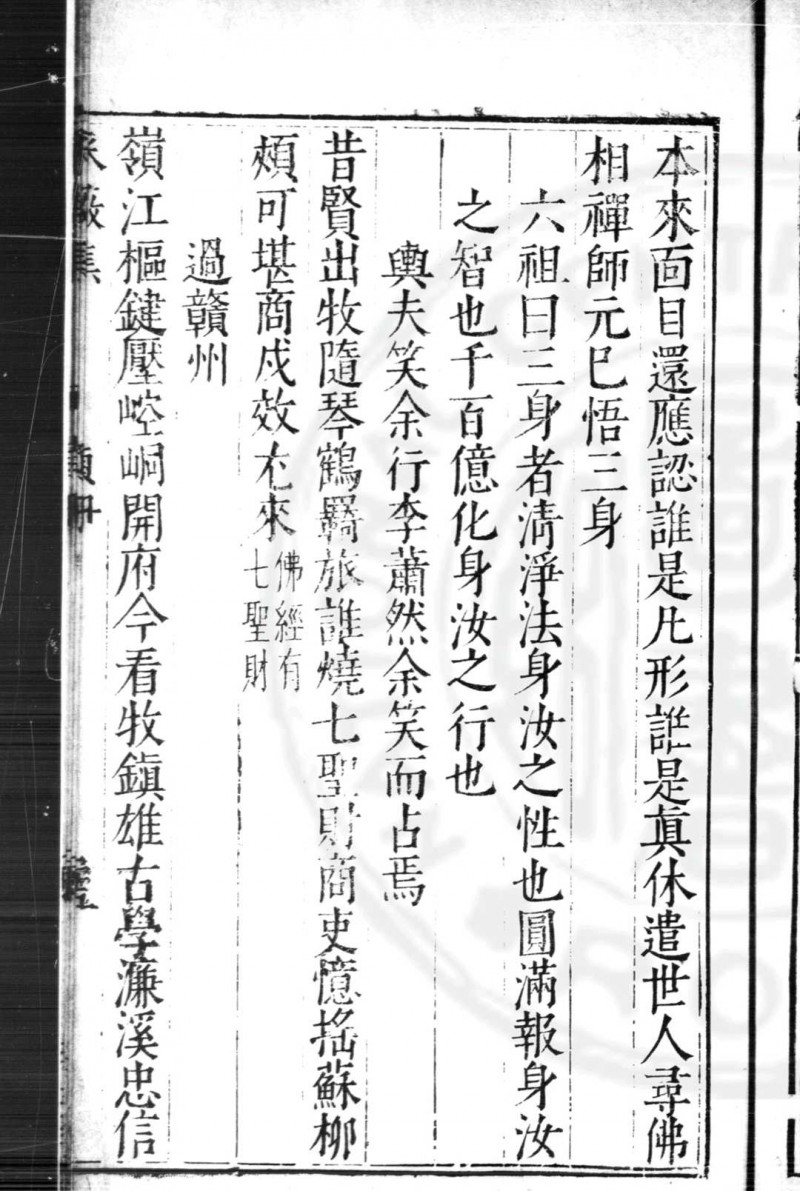 本來面目還應認誰是凡形誰是眞休遣世人尋佛
相禪師元已悟三身
六祖曰三身者清淨法身汝之性也圓滿報身汝
之智也千百億化身汝之行也
輿夫笑余行李蕭然余笑而占焉
昔賢出牧隨琴鶴羇旅誰燒七聖財商吏憶搖蘇柳
頰可堪商戍效尤來
佛經有
七聖財
過贛州
嶺江樞鍵壓崆峒開府今看牧鎭雄古學濂溪忠信